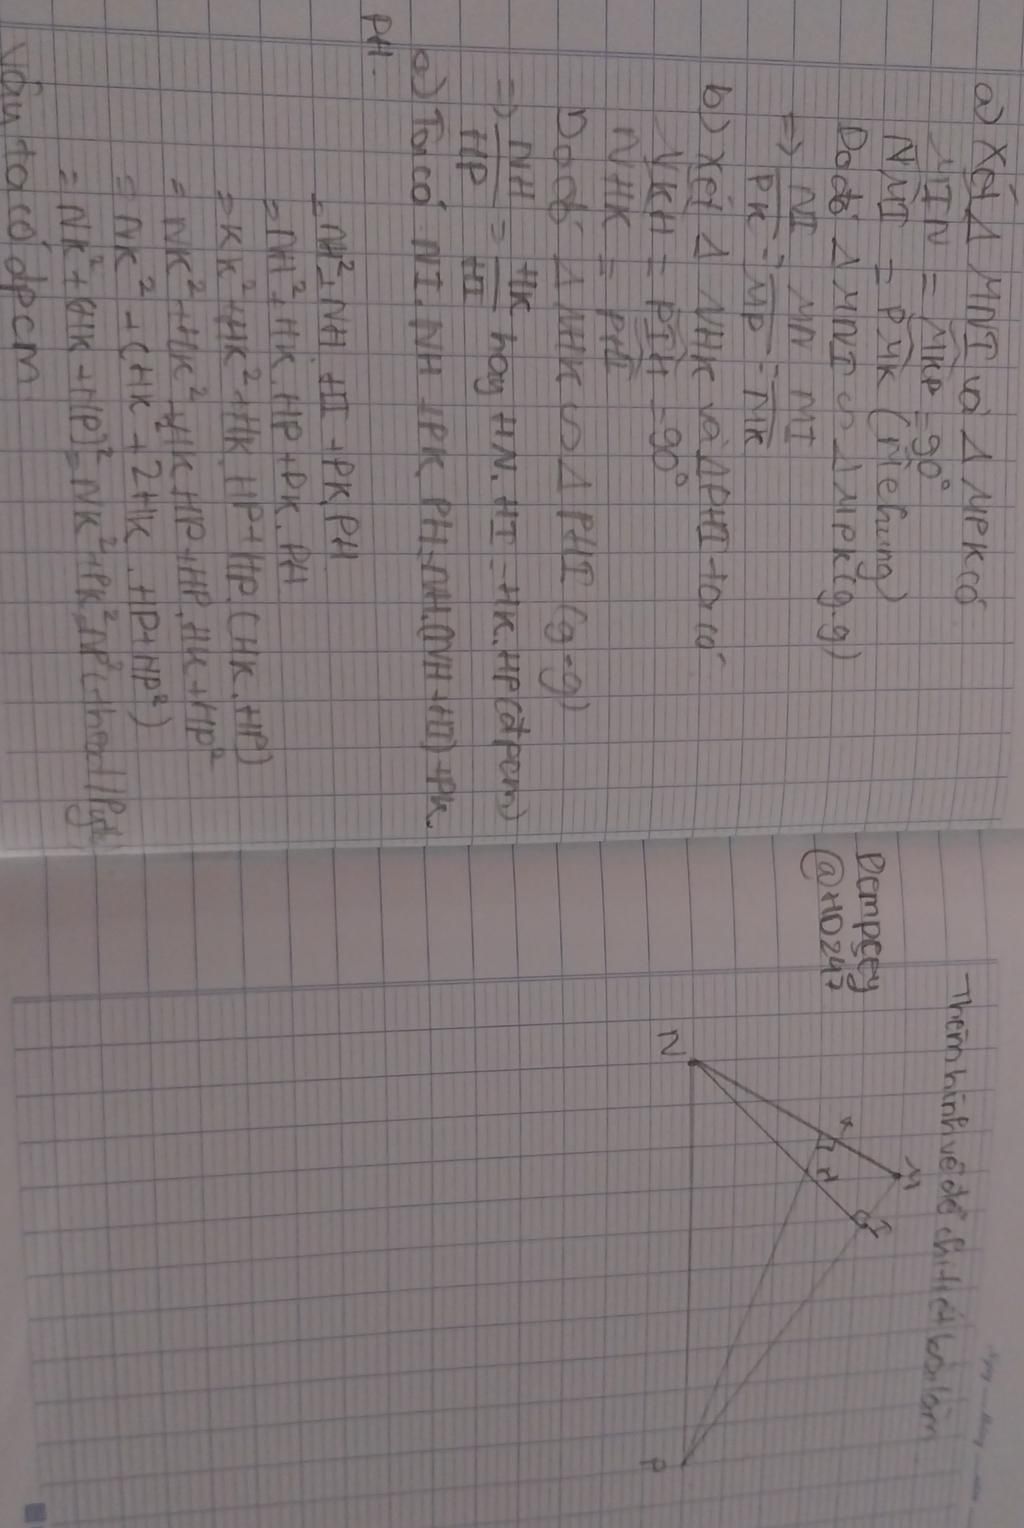 a) Xét Δ MNI và Δ MPK có
MIN = MKP = 90°
NMI = PMK (M chung)
Do đó Δ MNI ∽ Δ MPK (g.g)
=> NI/PK = MN/MP = MI/MK
b) Xét Δ NHK và ΔPHI ta có
NKH = PIH = 90°
NHK = PHI
Do đó Δ NHK ∽ Δ PHI (g-g)
=> NH/HP = HK/HI hay HN.HI = HK.HP (đpcm)
c) Ta có NI.NH + PK.PH = NH.(NH+HI) + PK.
PH.
= NH² + NH.HI + PK.PH
= NH² + HK.HP + PK.PH
= KK² + HK² + HK.HP + HP.(HK.HP)
= NK² + HK² + HK.HP + HP.HK + HP²
= NK² + (HK + 2HK.HP + HP²)
= NK² + (HK + HP)² = NK² + PK² = NP² (theo
Vậy ta có đpcm
Thêm hình vẽ để chi tiết
Dempsey
@HD247
M
K
H
I
N
P